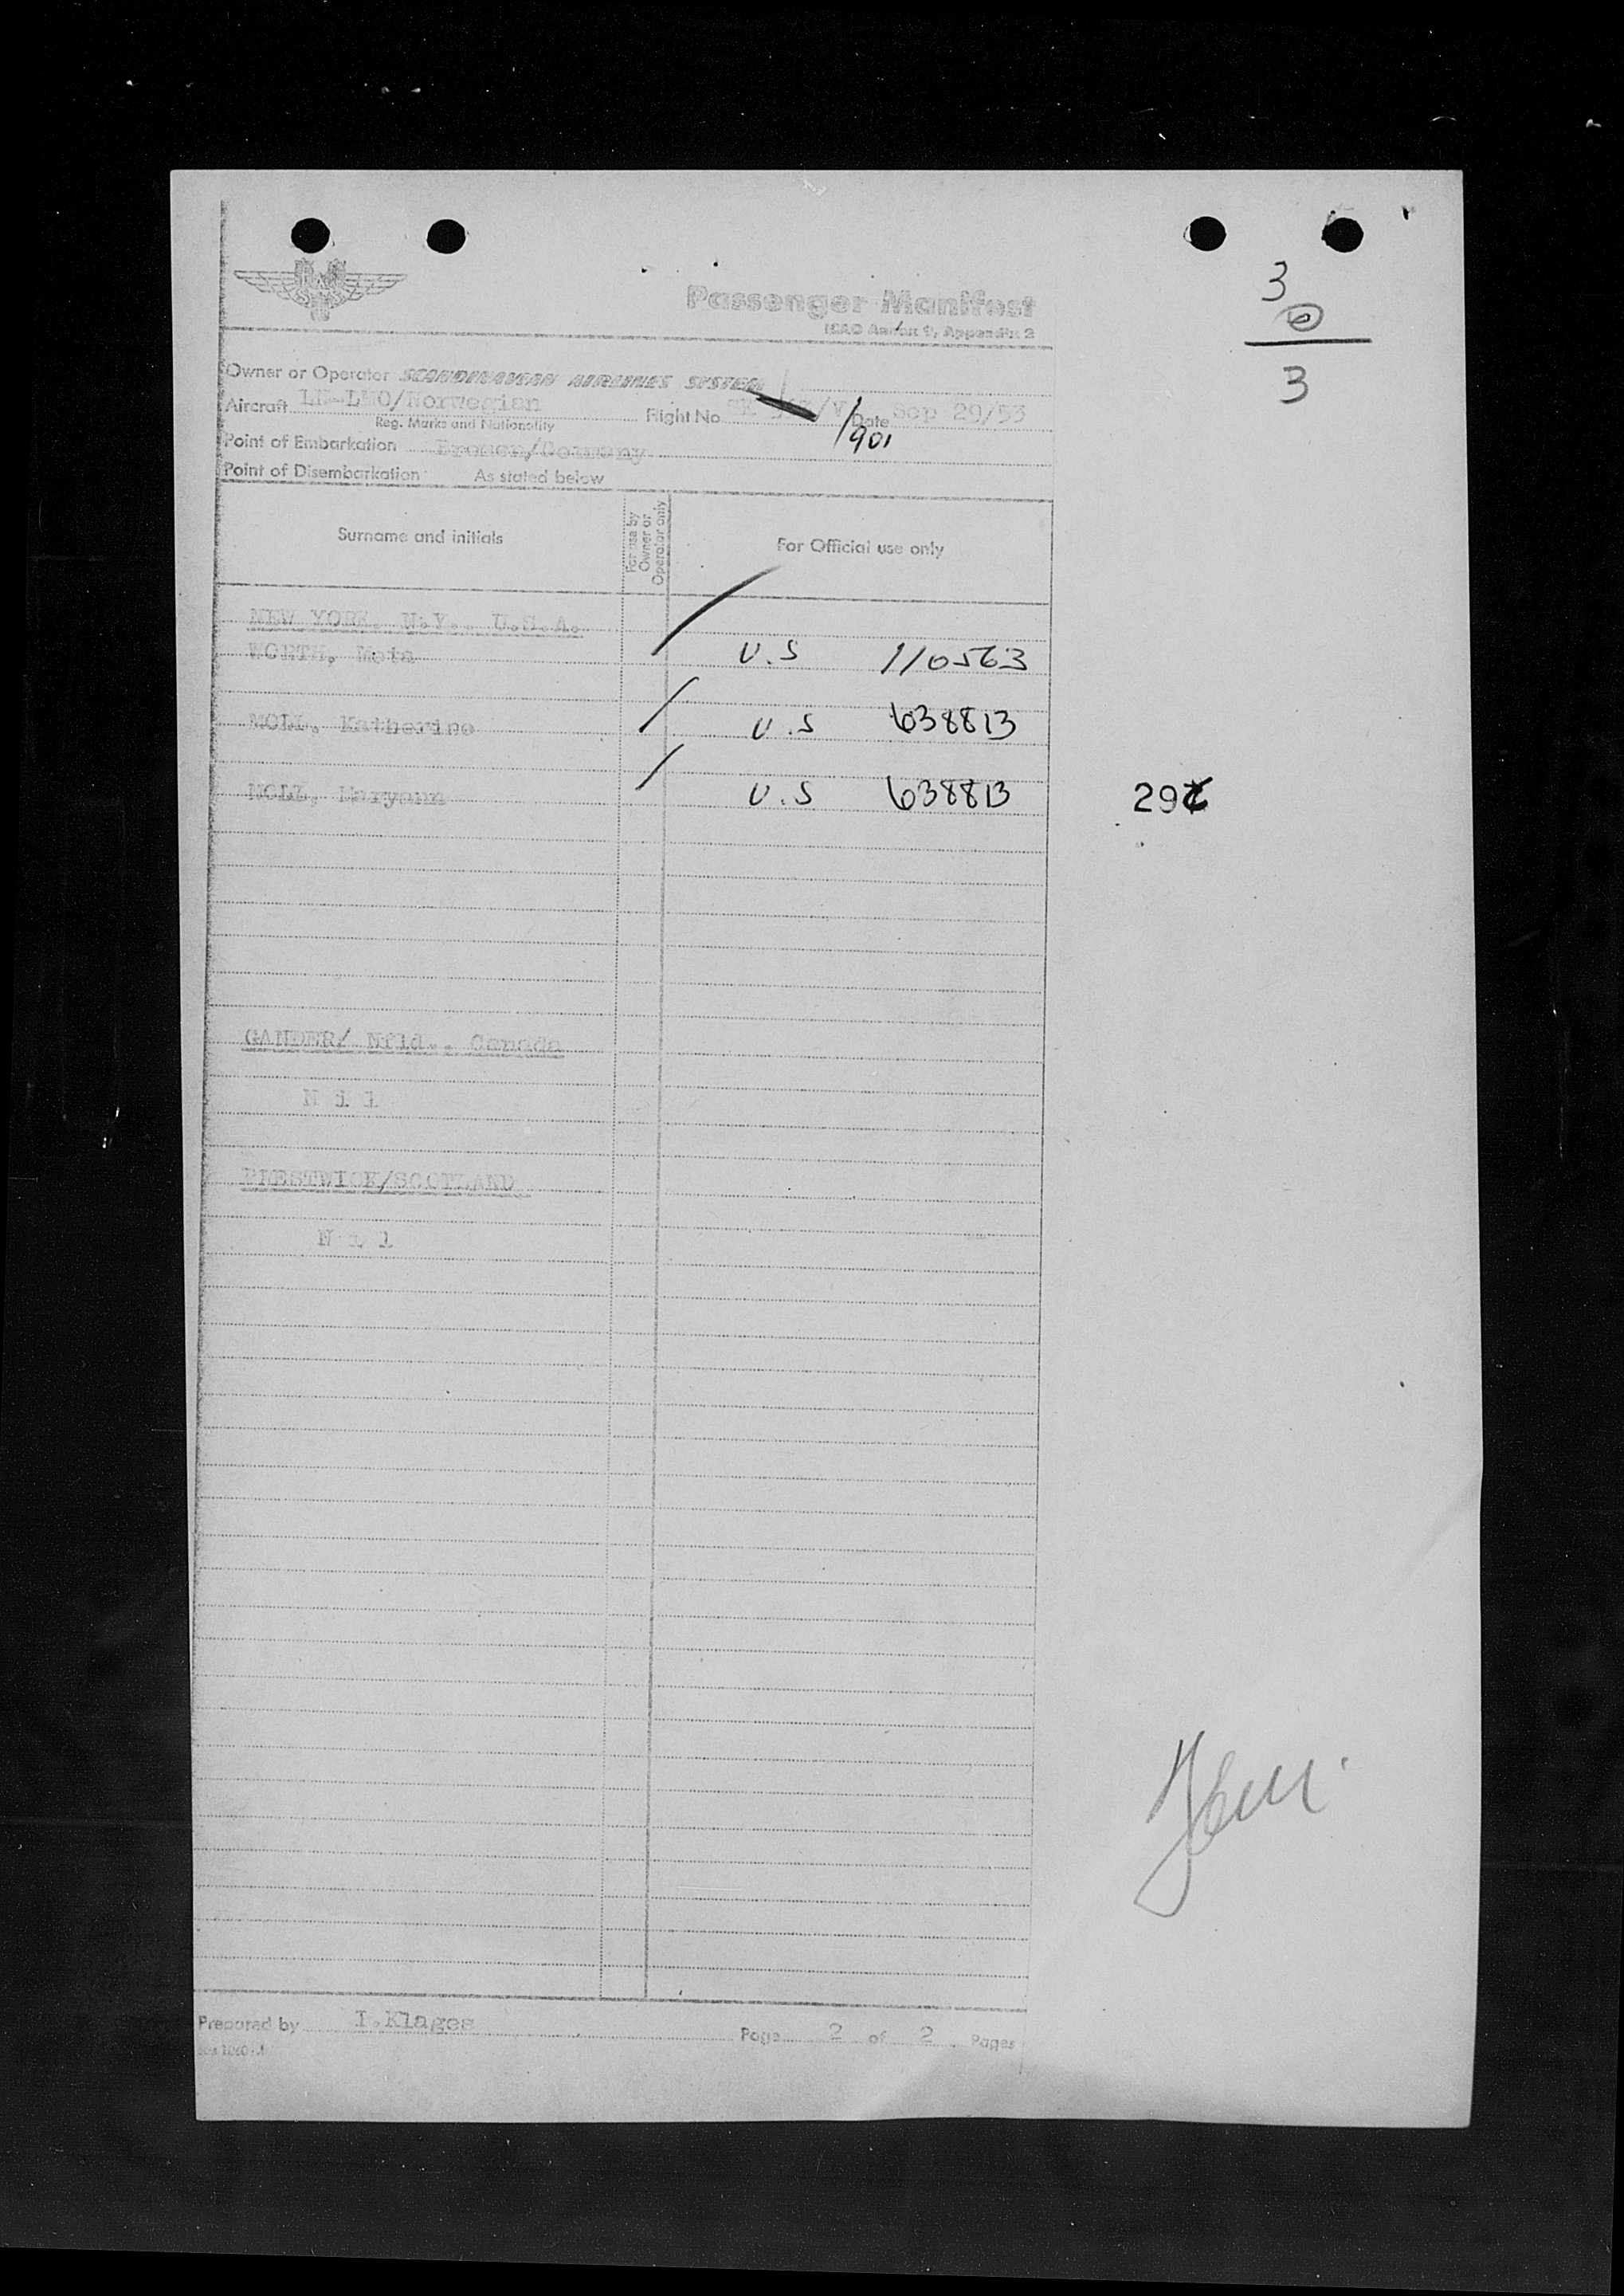 Passenger Manifest
ICAO Annex 9, Appendix 2
3
0
3
Owner or Operator SCANDINAVIAN AIRLINES SYSTEM
Aircraft LN-LMO/Norwegian Flight No. SK Date Sep 29/53
Reg. Marks and Nationality
/901
Point of Embarkation Bremen/Germany
Point of Disembarkation As stated below
Surname and initials
For use by Owner or Operator only
For Official use only
NEW YORK, N.Y., U.S.A.
WORTH, Meta U.S 110563
MOLL, Katherine U.S 638813
MOLL, Maryann U.S 638813
29
GANDER/ Nfld., Canada
N i l
PRESTWICK/SCOTLAND
N i l
Prepared by I.Klages Page 2 of 2 Pages